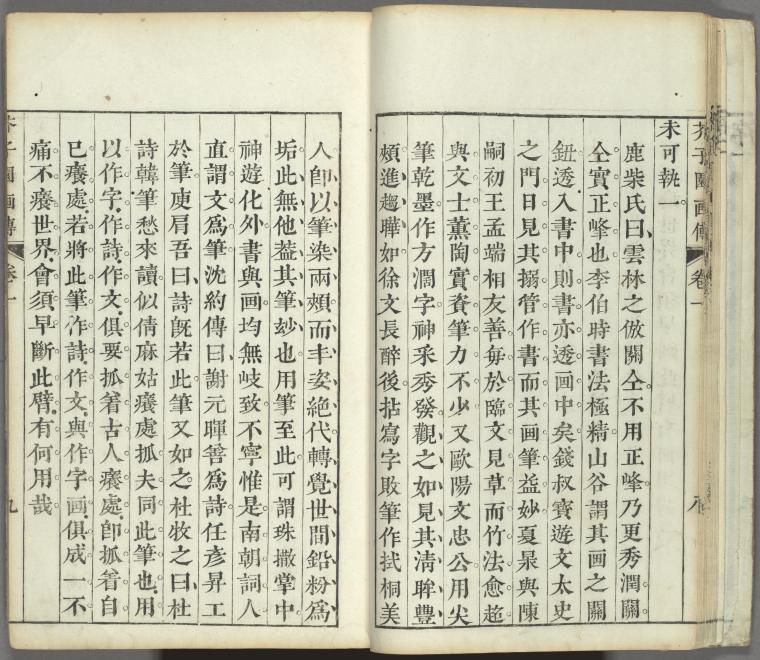 芥子園画傳 卷一 八
未可執一
鹿柴氏曰雲林之倣關仝不用正峰乃更秀潤關
仝實正峰也李伯時書法極精山谷謂其画之關
鈕透入書中則書亦透画中矣錢叔寳遊文太史
之門日見其搦管作書而其画筆益妙夏㫤與陳
嗣初王孟端相友善每於臨文見草而竹法愈超
與文士薰陶實資筆力不少又歐陽文忠公用尖
筆乾墨作方濶字神采秀發觀之如見其清眸豐
頰進趨曄如徐文長醉後拈寫字敗筆作拭桐美
人卽以筆染兩頰而丰姿絶代轉覺世間鉛粉爲
垢此無他葢其筆玅也用筆至此可謂珠撒掌中
神遊化外書與画均無岐致不寧惟是南朝詞人
直謂文爲筆沈約傳曰謝元暉善爲詩任彦昇工
於筆庾肩吾曰詩旣若此筆又如之杜牧之曰杜
詩韓筆愁來讀似倩麻姑癢處抓夫同此筆也用
以作字作詩作文俱要抓着古人癢處卽抓着自
已癢處若將此筆作詩作文與作字画俱成一不
痛不癢世界會須早斷此臂有何用哉
芥子園画傳 卷一 九